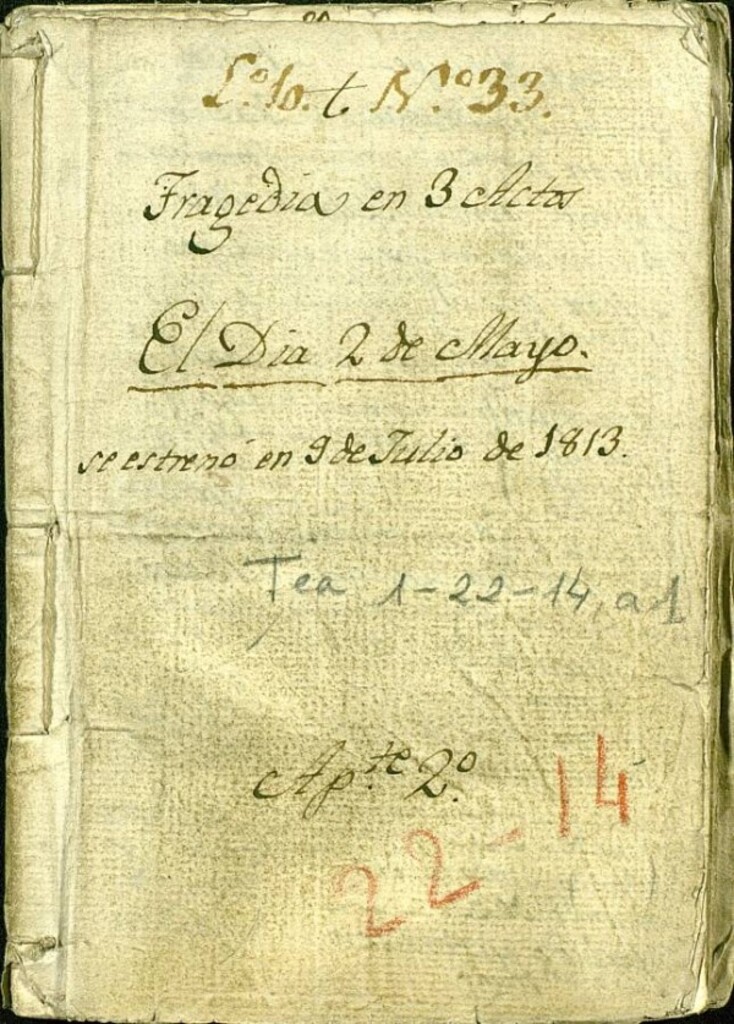 L.º 10. t N.º 33.
Tragedia en 3 Actos
El Dia 2 de Mayo.
se estrenó en 9 de Julio de 1813.
Tea 1-22-14, a 1
Ap.te 2.º
22-14